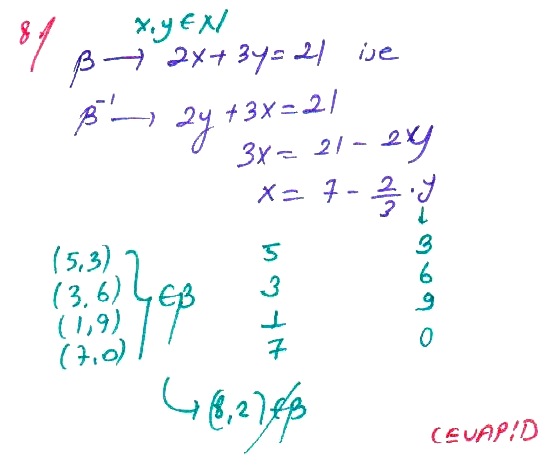 8) x,y ∈ N
β → 2x + 3y = 21 ise
β⁻¹ → 2y + 3x = 21
3x = 21 - 2y
x = 7 - 2/3 · y
↓
5 3
3 6
1 9
7 0
(5,3)
(3,6)
(1,9)
(7,0)
} ∈ β
↳ (8,2) ∉ β
CEVAP: D